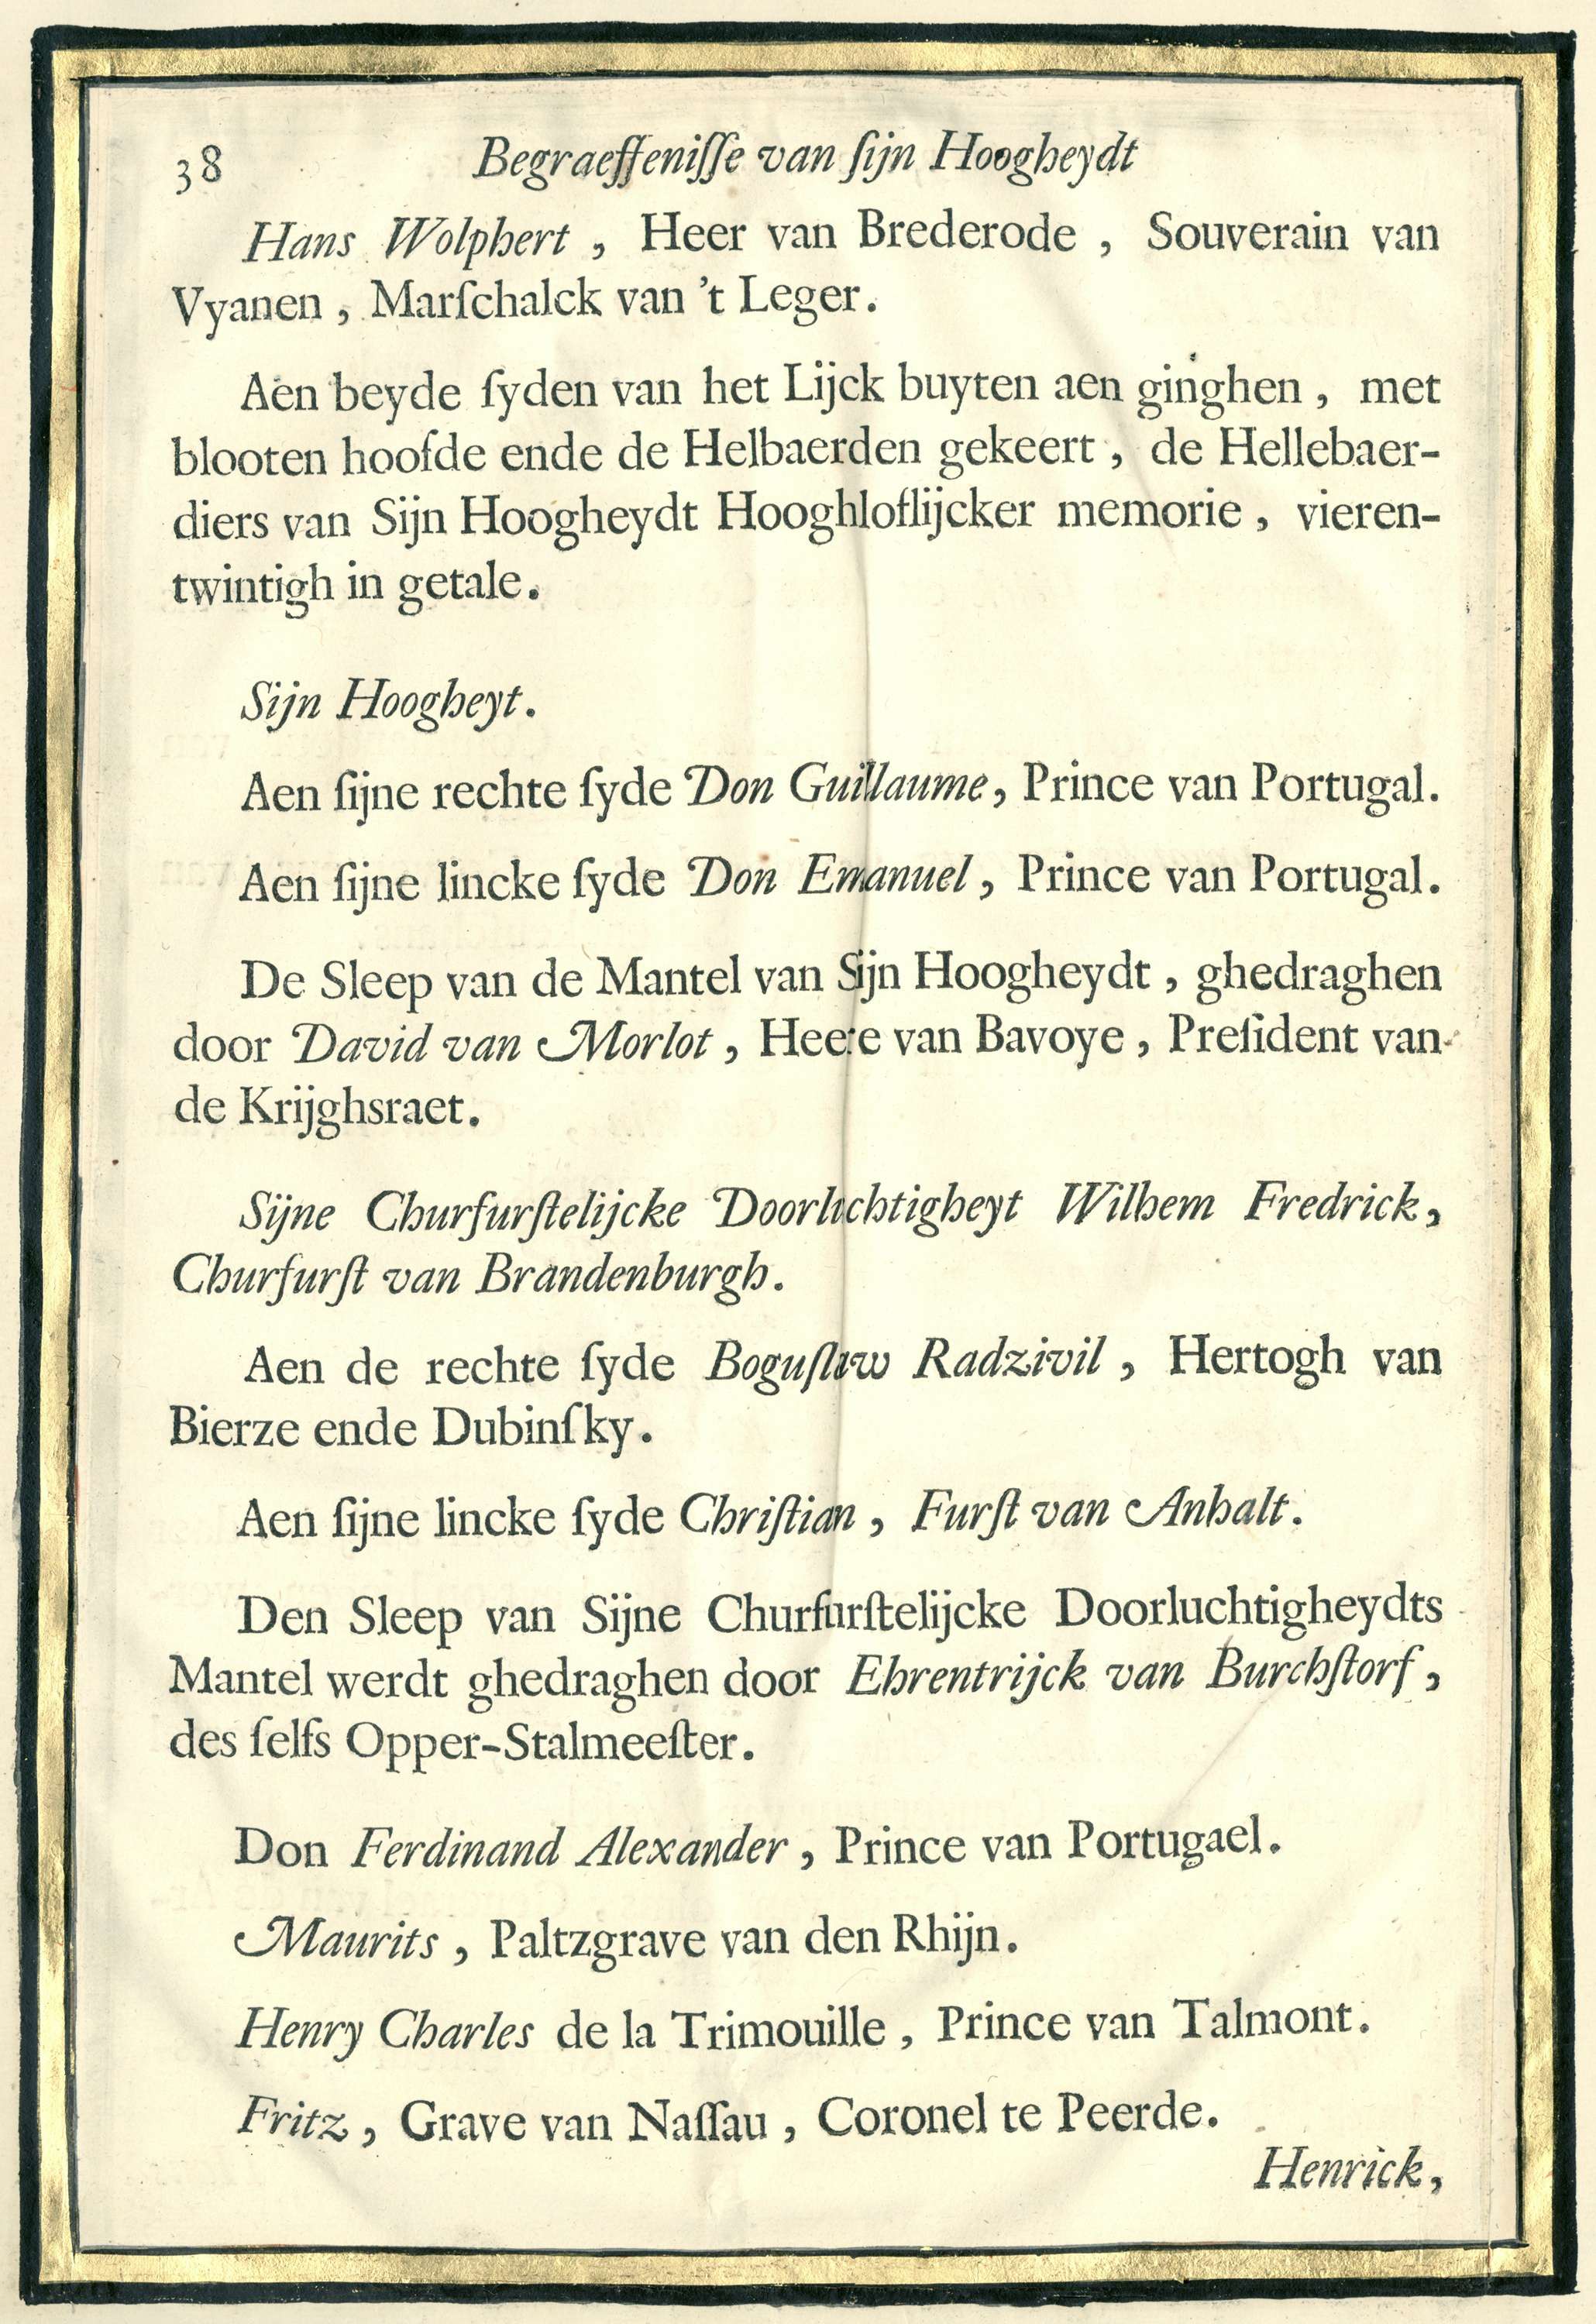 38 Begraeffeniſſe van ſijn Hoogheydt
Hans Wolphert, Heer van Brederode, Souverain van
Vyanen, Marſchalck van 't Leger.
Aen beyde ſyden van het Lijck buyten aen ginghen, met
blooten hoofde ende de Helbaerden gekeert, de Hellebaer-
diers van Sijn Hoogheydt Hooghloflijcker memorie, vieren-
twintigh in getale.
Sijn Hoogheyt.
Aen ſijne rechte ſyde Don Guillaume, Prince van Portugal.
Aen ſijne lincke ſyde Don Emanuel, Prince van Portugal.
De Sleep van de Mantel van Sijn Hoogheydt, ghedraghen
door David van Morlot, Heere van Bavoye, Preſident van
de Krijghsraet.
Sijne Churfurſtelijcke Doorluchtigheyt Wilhem Fredrick,
Churfurſt van Brandenburgh.
Aen de rechte ſyde Boguſlaw Radzivil, Hertogh van
Bierze ende Dubinſky.
Aen ſijne lincke ſyde Chriſtian, Furſt van Anhalt.
Den Sleep van Sijne Churfurſtelijcke Doorluchtigheydts
Mantel werdt ghedraghen door Ehrentrijck van Burchſtorf,
des ſelfs Opper-Stalmeeſter.
Don Ferdinand Alexander, Prince van Portugael.
Maurits, Paltzgrave van den Rhijn.
Henry Charles de la Trimouille, Prince van Talmont.
Fritz, Grave van Naſſau, Coronel te Peerde.
Henrick,